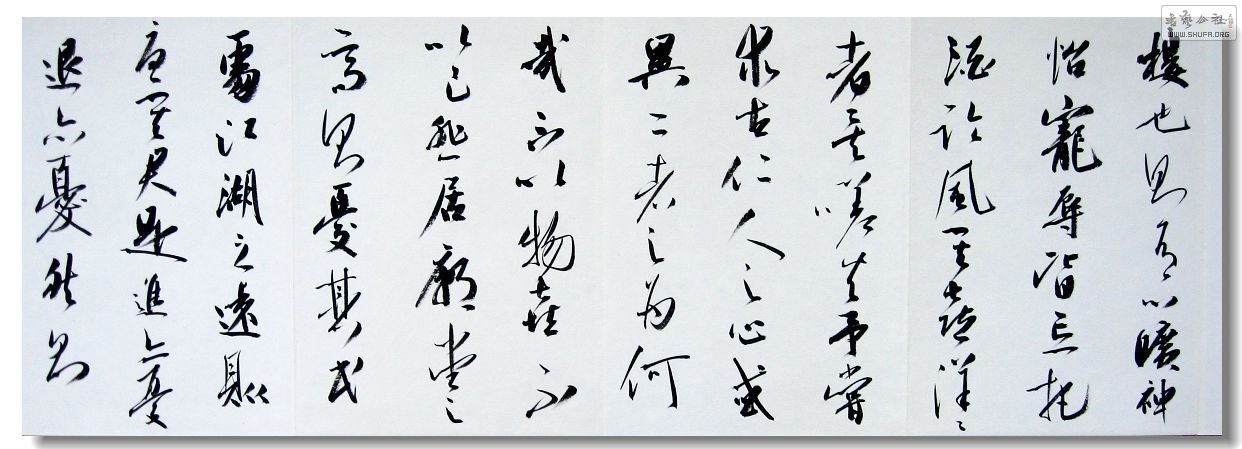 樓也則有心曠神
怡寵辱皆忘把
酒臨風其喜洋々
者矣嗟夫予嘗
求古仁人之心或
異二者之為何
哉不以物喜不
以己悲居廟堂之
高則憂其民
處江湖之遠則
憂其君是進亦憂
退亦憂然則
书艺公社
WWW.SHUFA.ORG